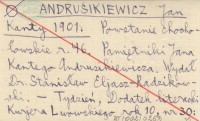 ANDRUSIKIEWICZ Jan
Kanty 1901. Powstanie Chocho-
łowskie r. 46. Pamiętniki Jana
Kantego Andrusikiewicza. Wydał
Dr. Stanisław Eljasz-Radzikow-
ski. Tydzień, Dodatek literacki
Kurjera Lwowskiego rok 10, nr 30: